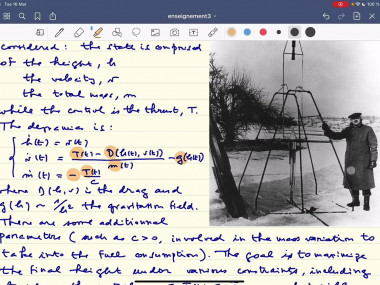 Tue 16 Mar
enseignement3
100 %
considered: the state is comprised
of the height, h
the velocity, v
the total mass, m
while the control is the thrust, T.
The dynamics is:
ḣ(t) = v(t)
v̇(t) = (T(t) - D(h(t), v(t))) / m(t) - g(h(t))
ṁ(t) = - T(t)/c
where D(h, v) is the drag and
the gravitation field.
There are some additional
parameters (such as c>0, involved in the mass variation to
take into the fuel consumption). The goal is to maximize
the final height under various constraints, including